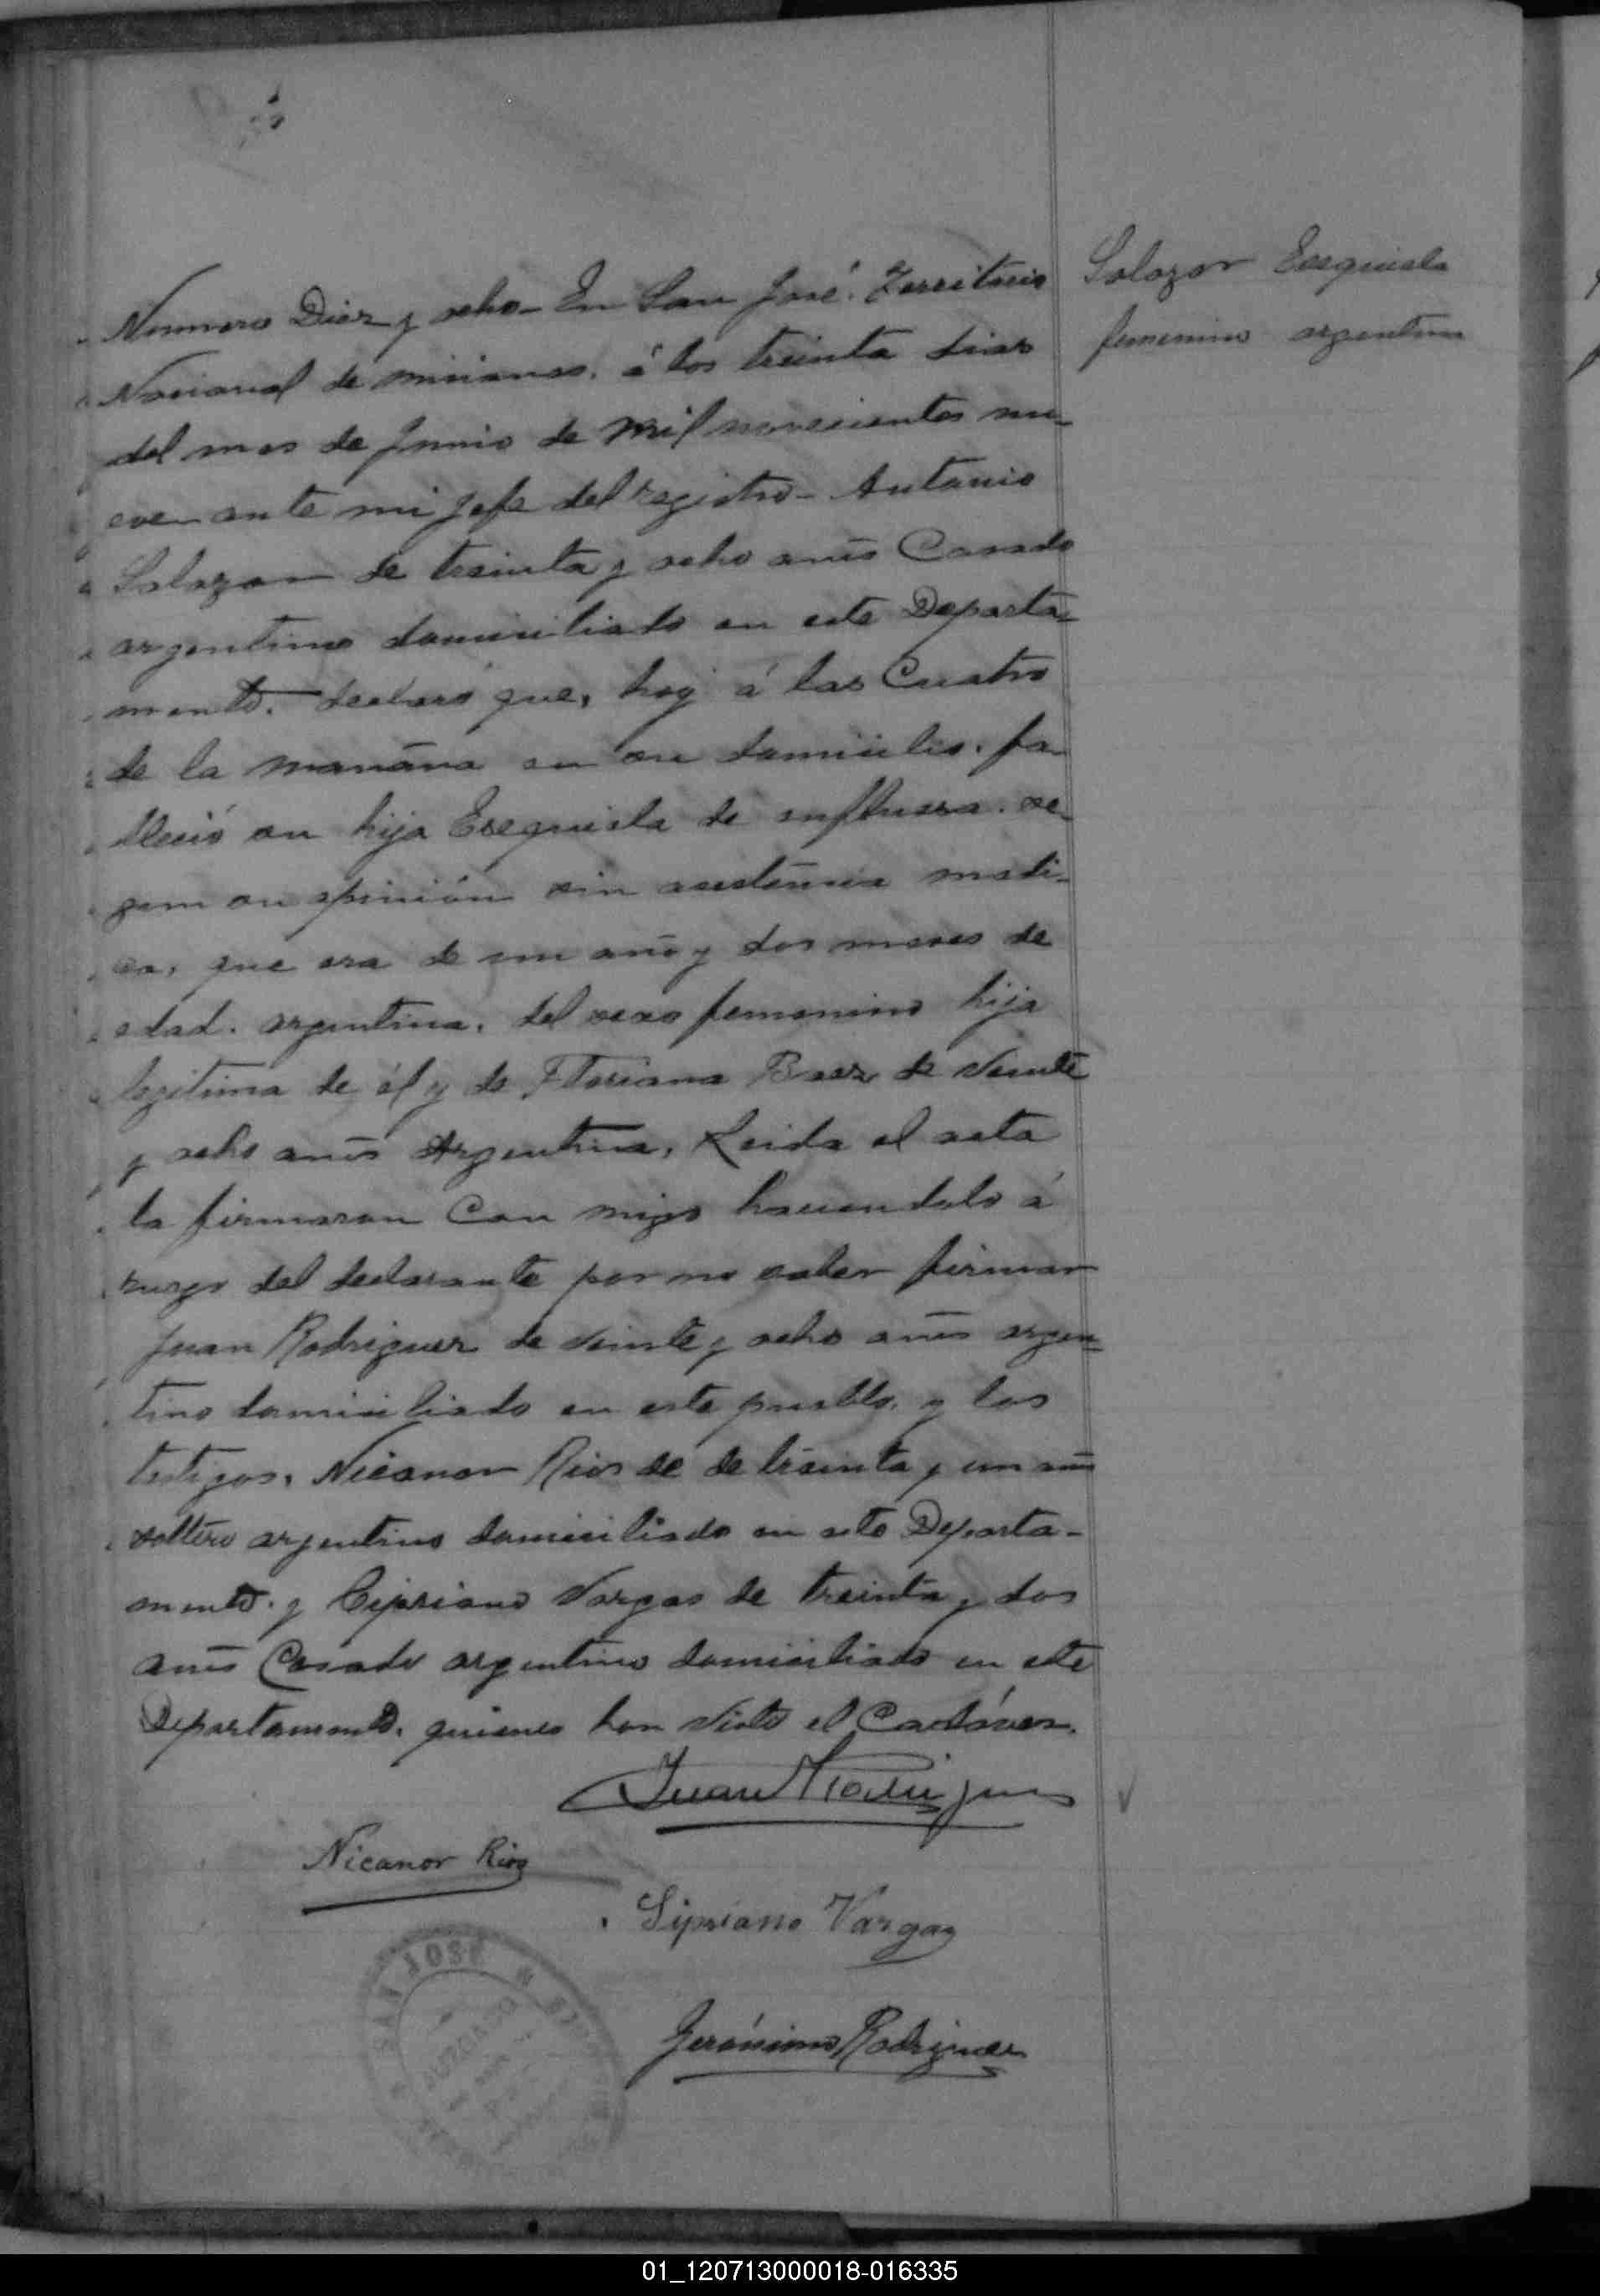 Salazar Esequiela
femenino argentina
Numero Diez y ocho - En San José. Territorio
Nacional de misiones. á los treinta dias
del mes de Junio de Mil novecientos nu-
eve ante mi Jefe del registro - Antonio
Salazar de treinta y ocho años Casado
argentino domiciliado en este Departa-
mento. declaró que, hoy á las Cuatro
de la mañana en su domicilio. fa-
lleció su hija Esequiela de influensa. se-
gun su opinión sin asistencia medi-
ca, que era de un año y dos meses de
edad. argentina, del sexo femenino hija
legitima de él y de Floriana Baez de veinte
y ocho años Argentina, Leida el acta
la firmaron Con migo haciendolo á
ruego del declarante por no saber firmar
Juan Rodriguez de veinte y ocho años argen-
tino domiciliado en este pueblo, y los
testigos, Nicanor Rios de de treinta y un años
soltero argentino domiciliado en este Departa-
mento. y Cipriano Vargas de treinta y dos
años Casado argentino domiciliado en este
Departamento. quienes han visto el Cadáver.
Juan Rodriguez
Nicanor Rios
Sipriano Vargas
Jerónimo Rodriguez
SAN JOSÉ
JUZGADO
01_120713000018-016335